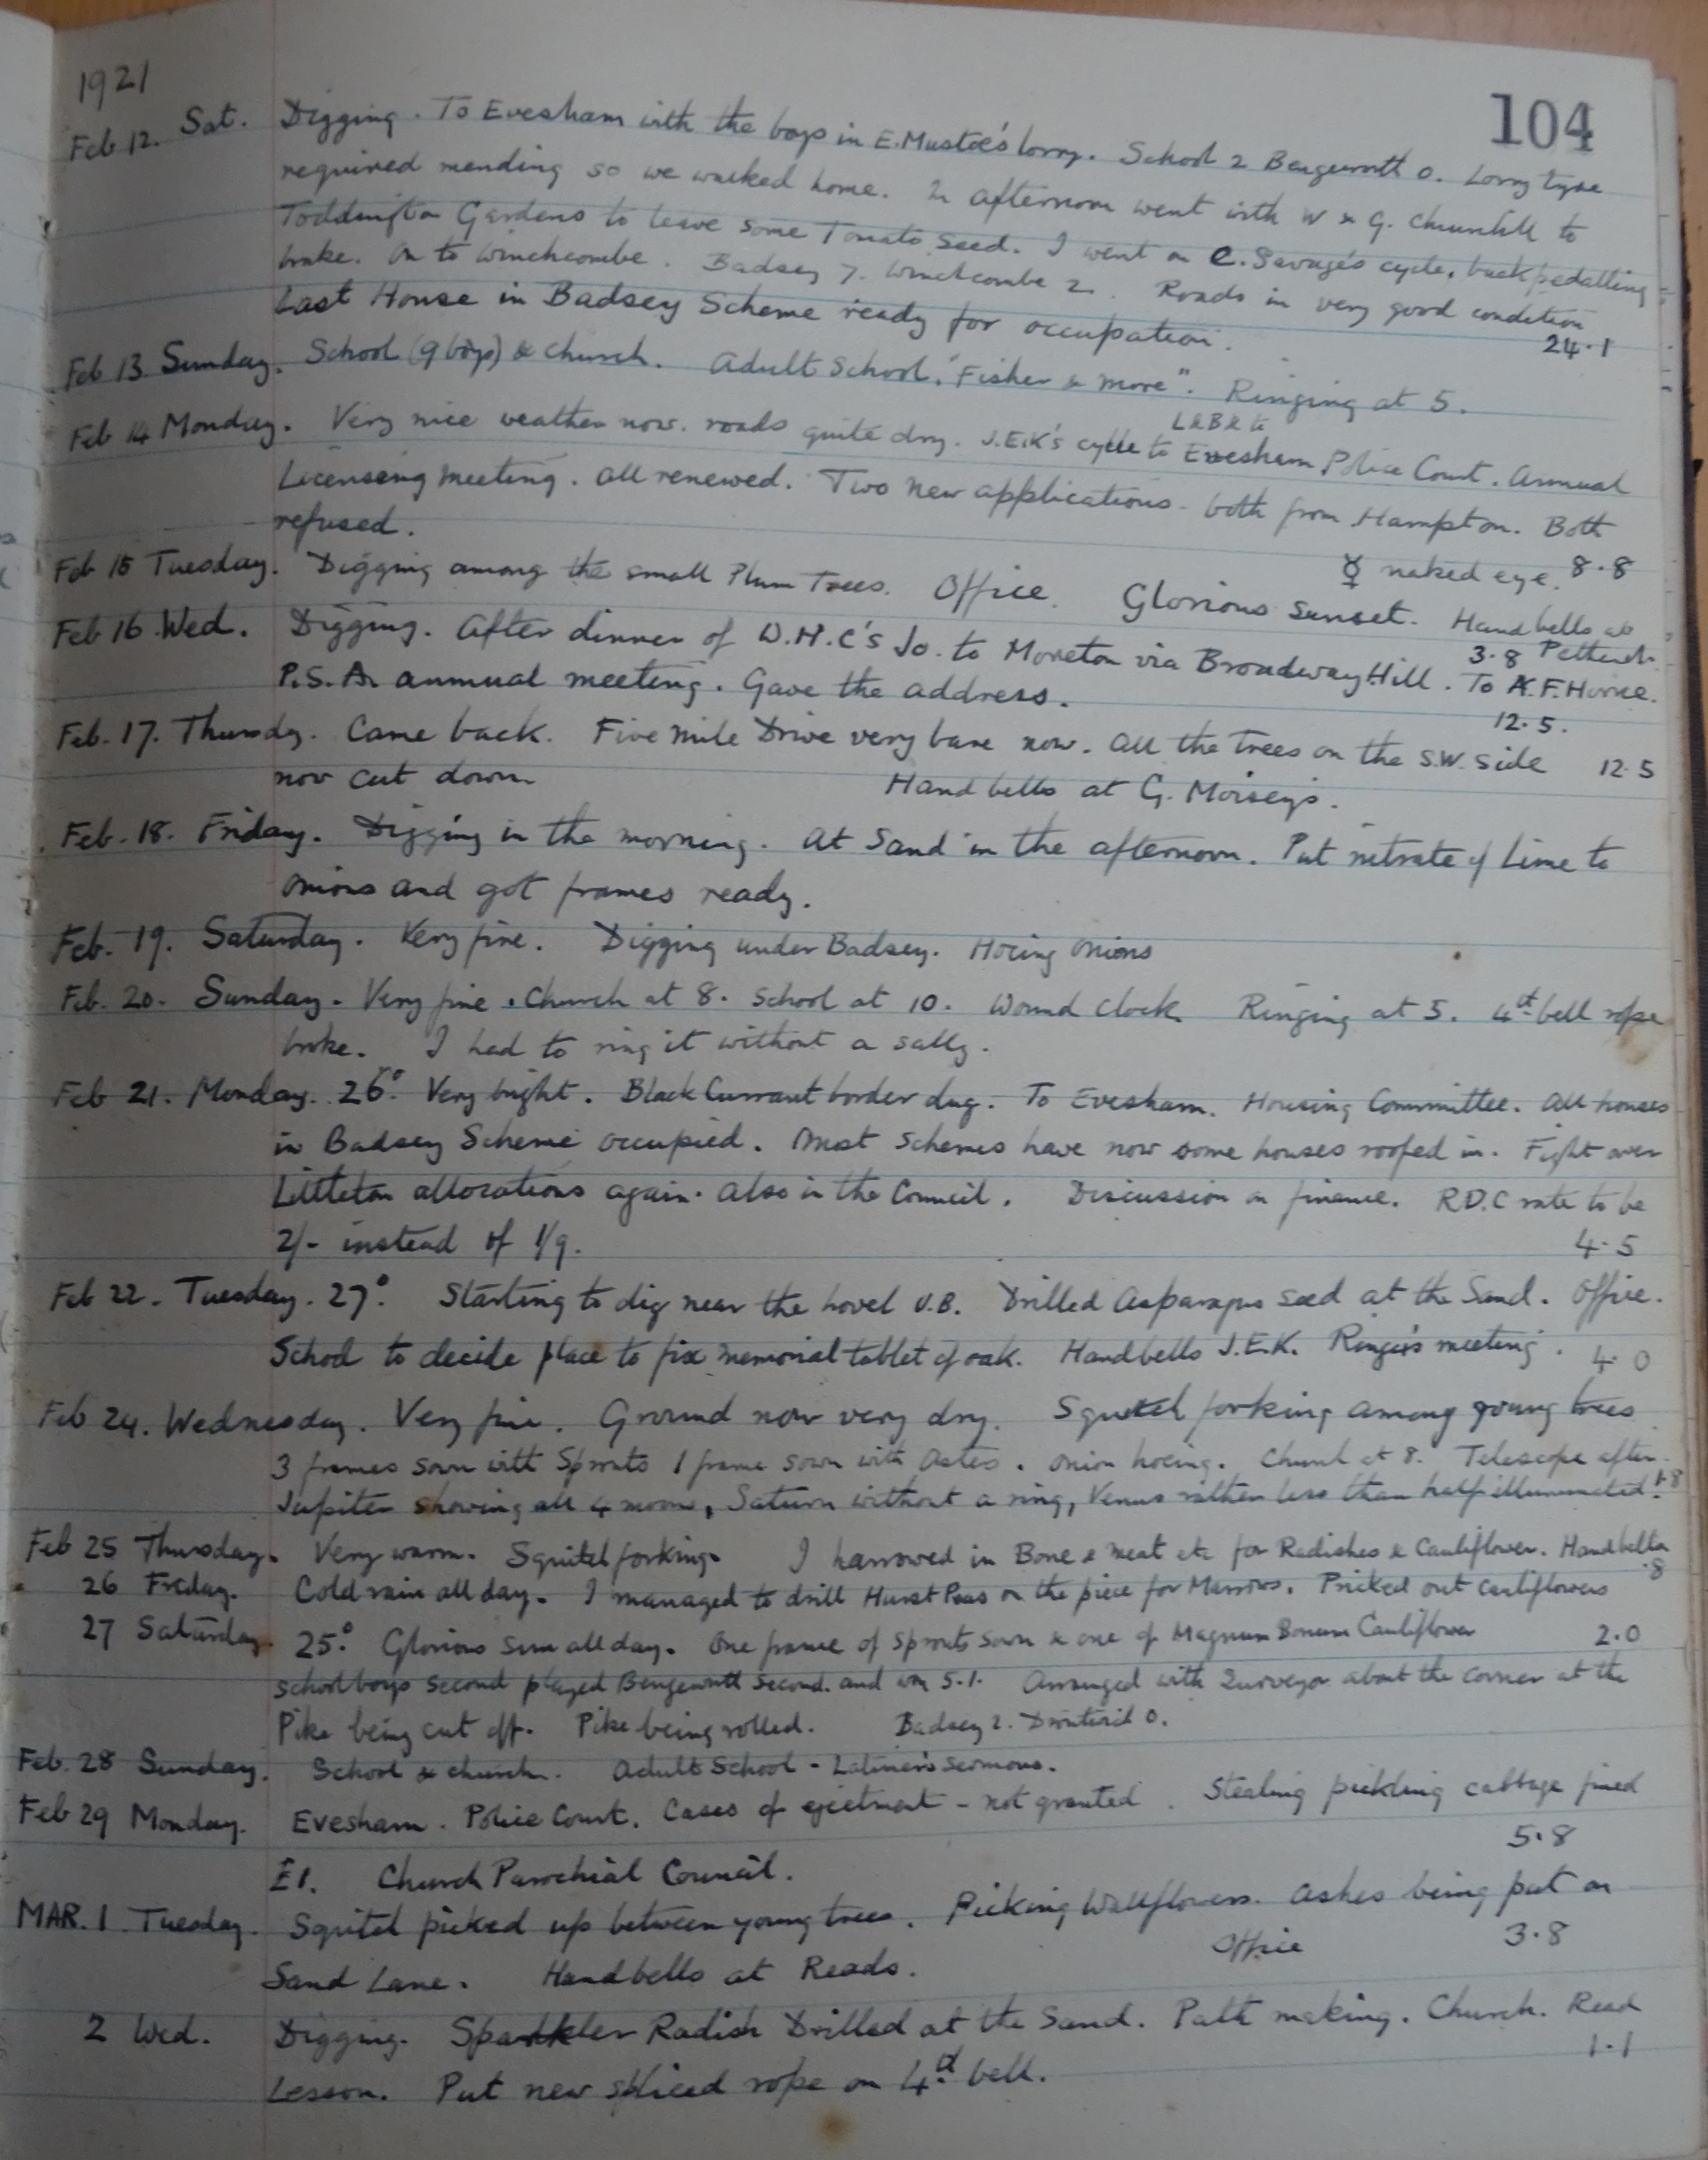 1921
104
Feb 12. Sat. Digging. To Evesham with the boys in E. Mustoe's lorry. School 2 Bengeworth 0. Lorry tyre
required mending so we walked home. In afternoon went with W & G. Churchill to
Toddington Gardens to leave some Tomato seed. I went on C. Savage's cycle, back pedalling
brake. On to Winchcombe. Badsey 7. Winchcombe 2. Roads in very good condition
Last House in Badsey Scheme ready for occupation. 24.1
Feb 13 Sunday. School (9 boys) & church. Adult School. "Fisher & More". Ringing at 5.
Feb 14 Monday. Very nice weather now. roads quite dry. J.E.K's cycle to L&B& to Evesham Police Court. Annual
Licensing Meeting. All renewed. Two new applications - both from Hampton. Both
refused. ☿ naked eye. 8.8
Feb 15 Tuesday. Digging among the small Plum Trees. Office. Glorious sunset. Handbells at
3.8
Feb 16 Wed. Digging. After dinner of W.H.C's to Moreton via Broadway Hill. To A.F. Horne.
P.S.A. annual meeting. Gave the address. 12.5.
Feb. 17. Thursday. Came back. Five Mile Drive very bare now. All the trees on the S.W. side 12.5
now cut down Handbells at G. Moisey's.
Feb. 18. Friday. Digging in the morning. At Sand in the afternoon. Put nitrate of Lime to
onions and got frames ready.
Feb. 19. Saturday. Very fine. Digging under Badsey. Hoeing Onions
Feb. 20. Sunday. Very fine. Church at 8. School at 10. Wound clock. Ringing at 5. 4th bell rope
broke. I had to ring it without a sally.
Feb 21. Monday. 26°. Very bright. Black Currant border dug. To Evesham. Housing Committee. All houses
in Badsey Scheme occupied. Most schemes have now some houses roofed in. Fight over
Littleton allocations again. Also in the Council. Discussion on finance. R.D.C rate to be
2/- instead of 1/9. 4.5
Feb 22. Tuesday. 27°. Starting to dig near the hovel U.B. Drilled Asparagus seed at the Sand. Office.
School to decide place to fix memorial tablet of oak. Handbells J.E.K. Ringers meeting. 4.0
Feb 24. Wednesday. Very fine. Ground now very dry. Squitel forking among young trees
3 frames sown with Sprouts 1 frame sown with Asters. Onion hoeing. Church at 8. Telescope after.
Jupiter showing all 4 moons, Saturn without a ring, Venus rather less than half illuminated. 1.8
Feb 25 Thursday. Very warm. Squitel forking. I harrowed in Bone & meat etc for Radishes & Cauliflower. Handbells
.8
26 Friday. Cold rain all day. I managed to drill Hurst Peas on the piece for Marrows. Pricked out cauliflowers
27 Saturday. 25°. Glorious sun all day. One frame of sprouts sown & one of Magnum Bonum Cauliflower 2.0
Schoolboys second played Bengeworth second. and won 5.1. Arranged with Surveyor about the corner at the
Pike being cut off. Pike being rolled. Badsey 2. Droitwich 0.
Feb. 28 Sunday. School & church. Adult School - Latimer's Sermons.
Feb 29 Monday. Evesham. Police Court. Cases of ejectment - not granted. Stealing pickling cabbage fined
£1. Church Parochial Council. 5.8
MAR. 1 Tuesday. Squitel picked up between young trees. Picking Wallflowers. Ashes being put on
Sand Lane. Handbells at Reads. Office 3.8
2 Wed. Digging. Sparkler Radish Drilled at the Sand. Path making. Church. Read
Lesson. Put new spliced rope on 4th bell. 1.1